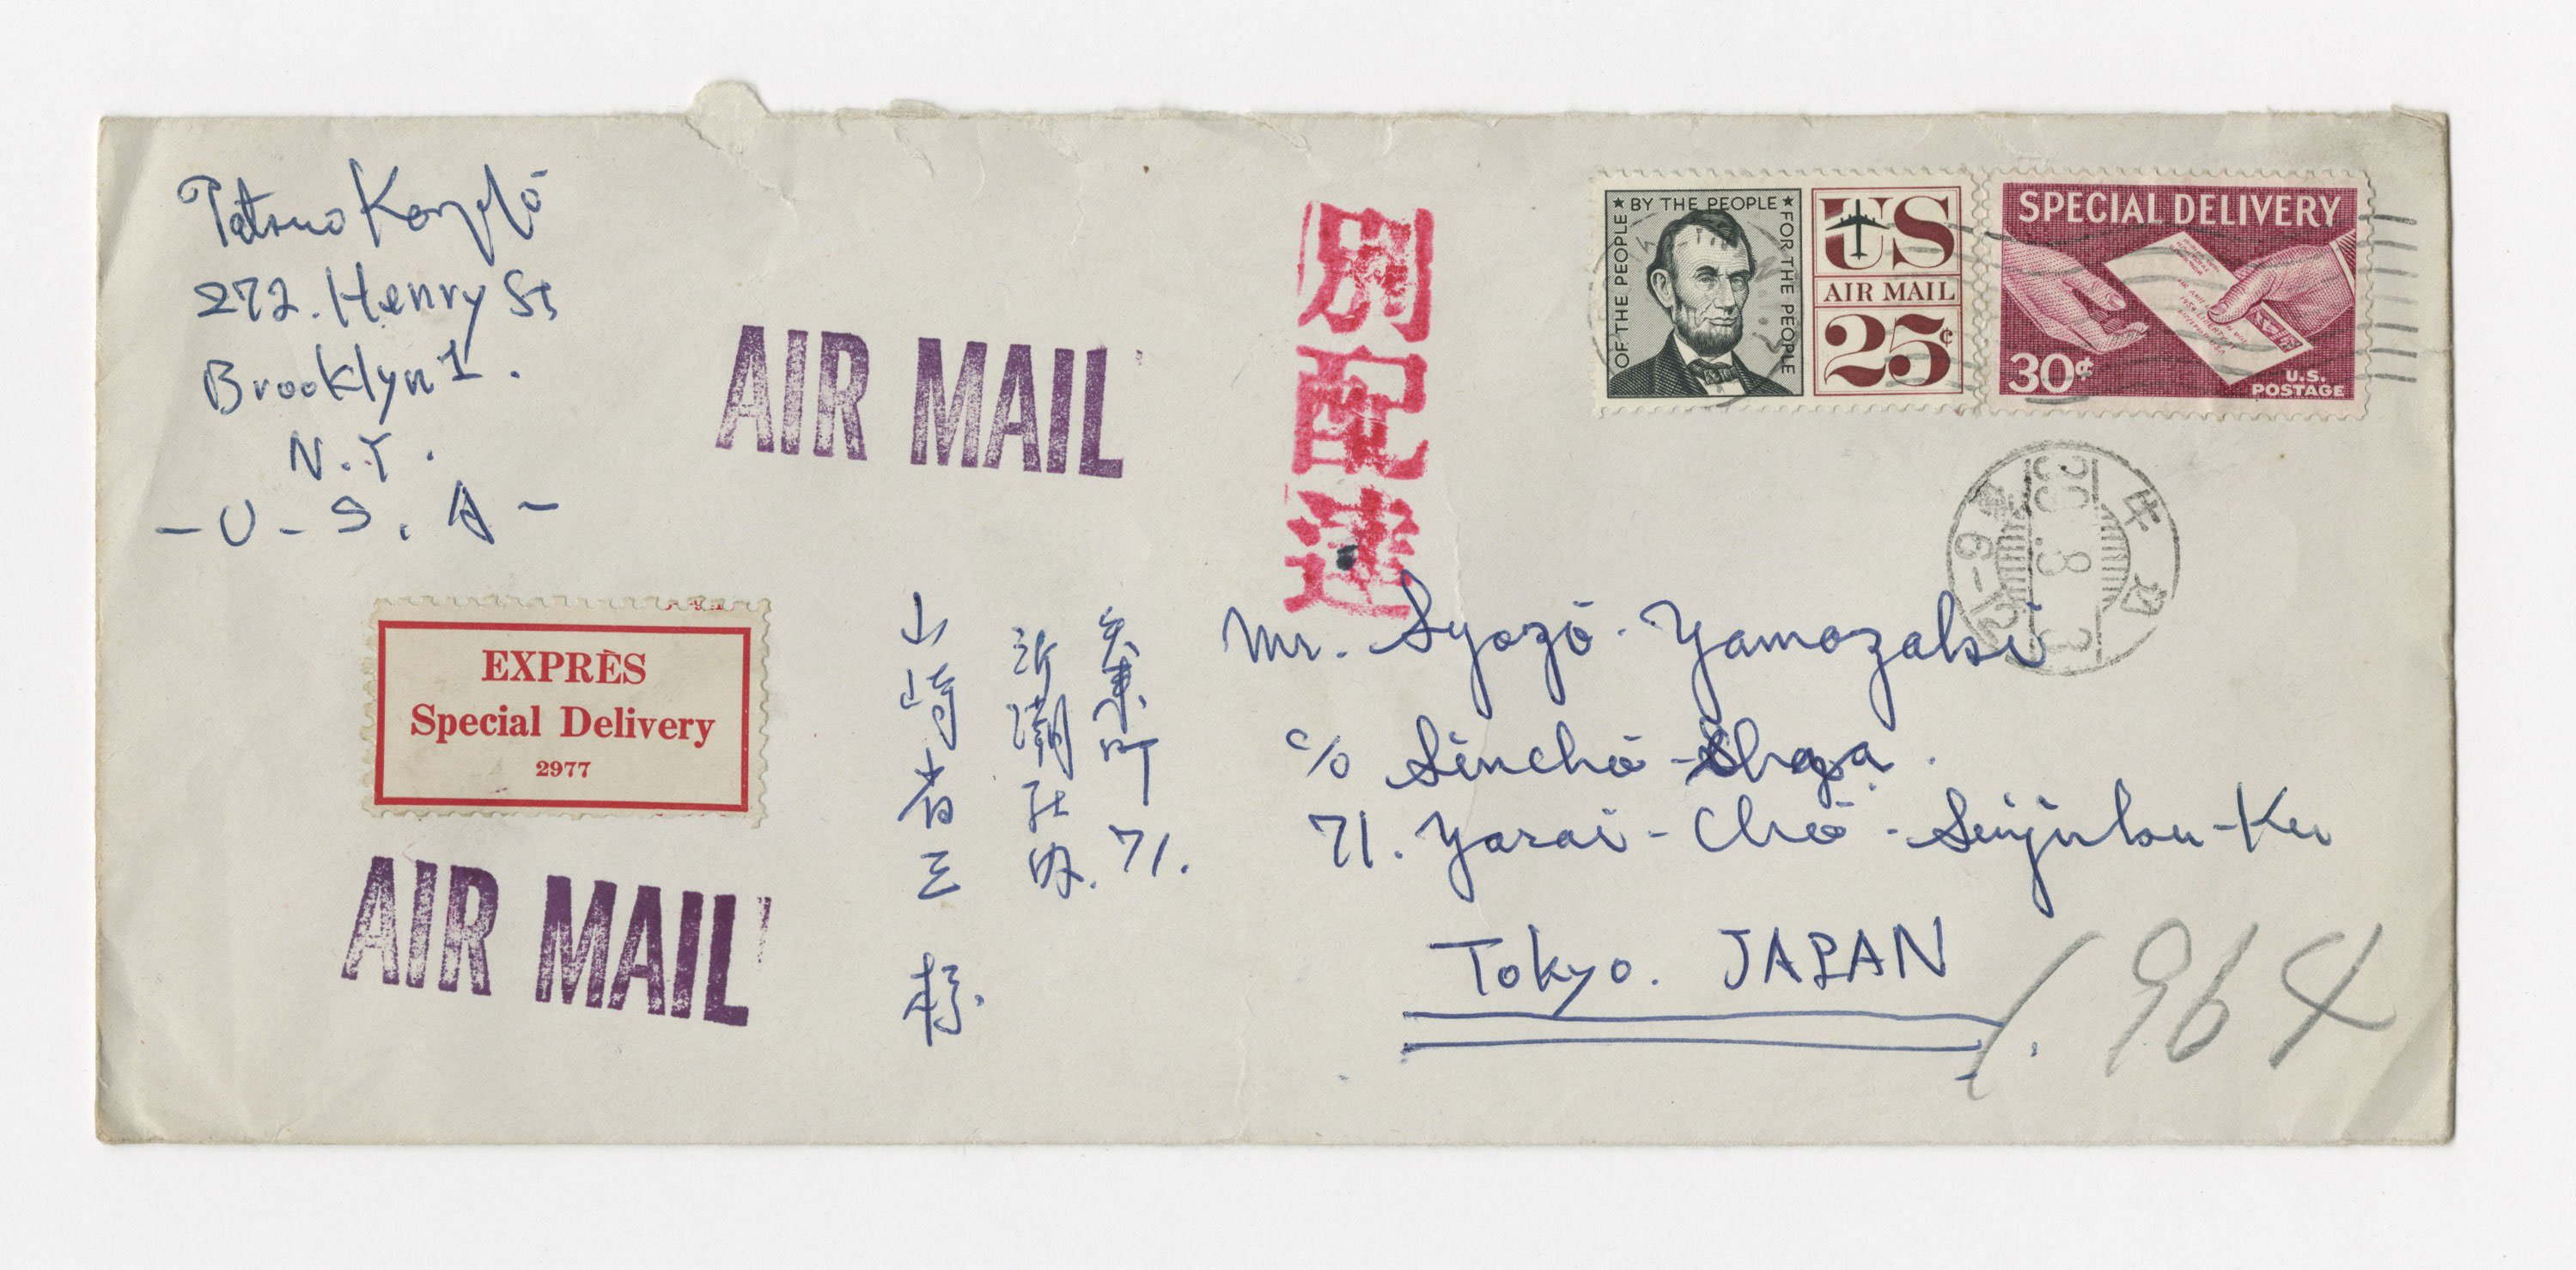 Tatsuo Kondô
272. Henry St
Brooklyn 1.
N.Y.
-U-S.A-
AIR MAIL
別配達
OF THE PEOPLE ★ BY THE PEOPLE ★ FOR THE PEOPLE
US
AIR MAIL
25¢
SPECIAL DELIVERY
30¢
U.S.
POSTAGE
牛込
39.3
EXPRÈS
Special Delivery
2977
AIR MAIL
矢来町71.
新潮社内.
山崎省三様
Mr. Syozô. Yamazaki
c/o Sinchô-Sha.
71. Yarai-Chô-Sinjuku-Ku
Tokyo. JAPAN
1964